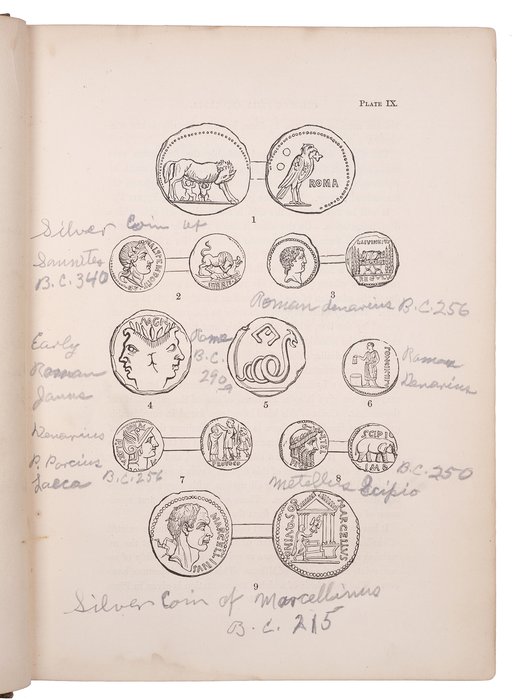 PLATE IX.
ROMA
1
Silver Coin of
Samnites
B.C. 340
2
3
Roman denarius B.C. 256
Early
Roman
Janus
Rome
B.C.
290
4
5
6
Roman
Denarius
Denarius
P. Porcius
Laeca
B.C. 256
PROVOCO
SCIPIO
IMP
7
8
Metellus Scipio
B.C. 250
MARCELLINVS
MARCELLVS
9
Silver Coin of Marcellinus
B.C. 215